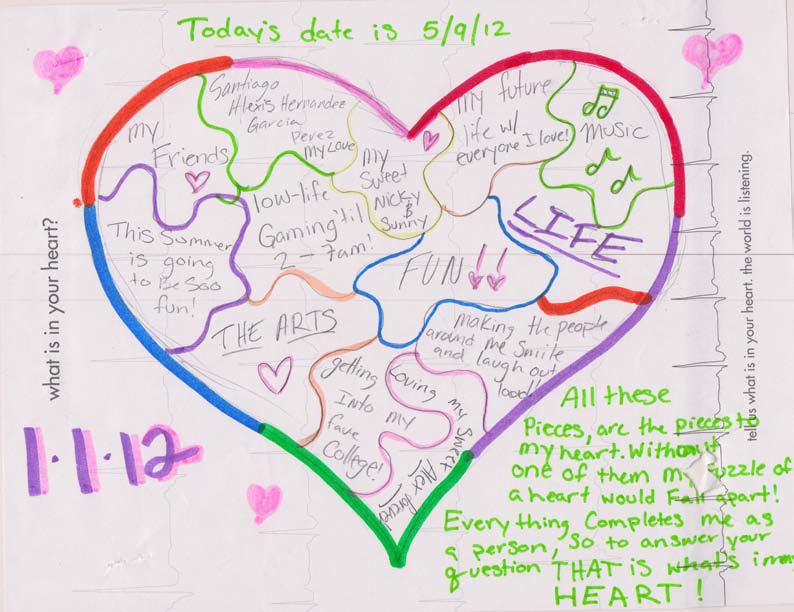 Today's date is 5/9/12
what is in your heart?
tell us what is in your heart. the world is listening.
my
Friends
Santiago
Alexis Hernandez
Garcia
Perez
My Love
My
Sweet
Nicky
&
Sunny
My future
life w/
everyone I love!
Music
LIFE
This Summer
is going
to Be Soo
fun!
low-life
Gaming 'til
2-7am!
FUN!!
THE ARTS
making the people
around me Smile
and laugh out
loud!
getting
Into my
fave
College!
Loving my Sweex
Alex forever!
1.1.12
All these
Pieces, are the pieces to
my heart. Without
one of them my puzzle of
a heart would Fall apart!
Everything Completes me as
a person, so to answer your
question THAT is what's in my
HEART!